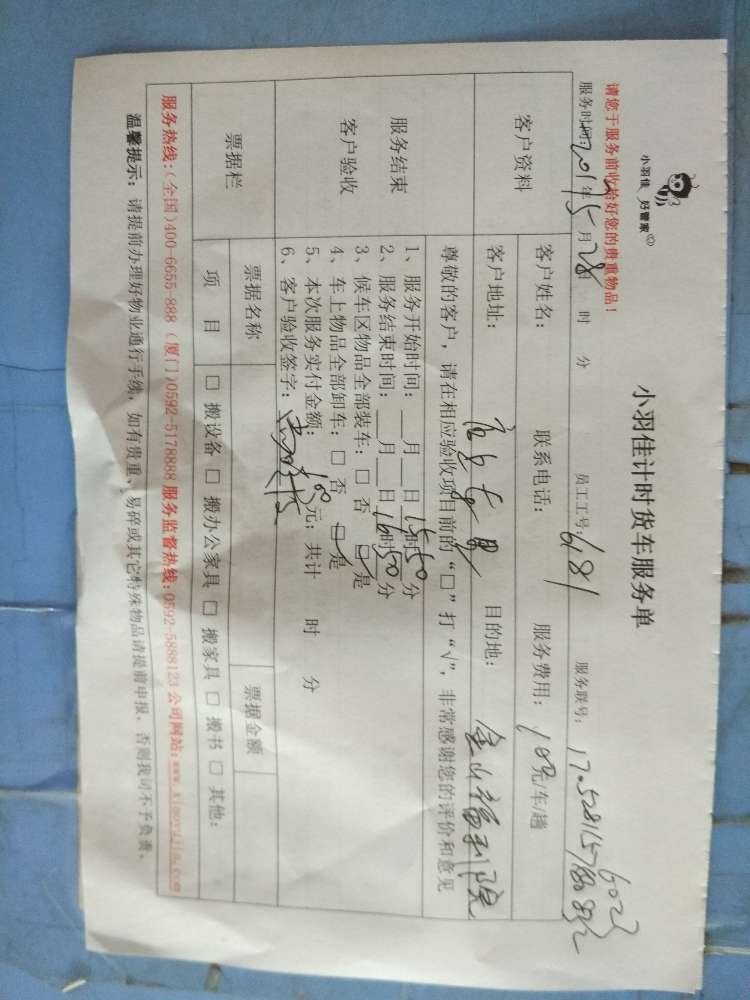 小羽佳 好管家
小羽佳计时货车服务单
请您于服务前收拾好您的贵重物品!
服务时间: 年 5 月 28 日 时 分 员工工号: 681 服务联号:
客户资料
客户姓名: 联系电话: 服务费用: 100 元/车/趟
客户地址: 目的地: 金山福利院
服务结束
客户验收
尊敬的客户,请在相应验收项目前的“□”打“√”,非常感谢您的评价和意见
1、服务开始时间: 月 日 15 时 50 分
2、服务结束时间: 月 日 16 时 50 分
3、候车区物品全部装车: □ 否 □ 是
4、车上物品全部卸车: □ 否 □ 是
5、本次服务实付金额: 100 元; 共计 时 分
6、客户验收签字:
票据栏
票据名称 票据金额
项 目 □ 搬设备 □ 搬办公家具 □ 搬家具 □ 搬书 □ 其他:
服务热线:(全国)400-6655-888 (厦门)0592-5178888 服务监督热线:0592-5888123 公司网站:www.xiaoyujia.com
温馨提示: 请提前办理好物业通行手续, 如有贵重、易碎或其它特殊物品请提前申报, 否则我司不予负责。